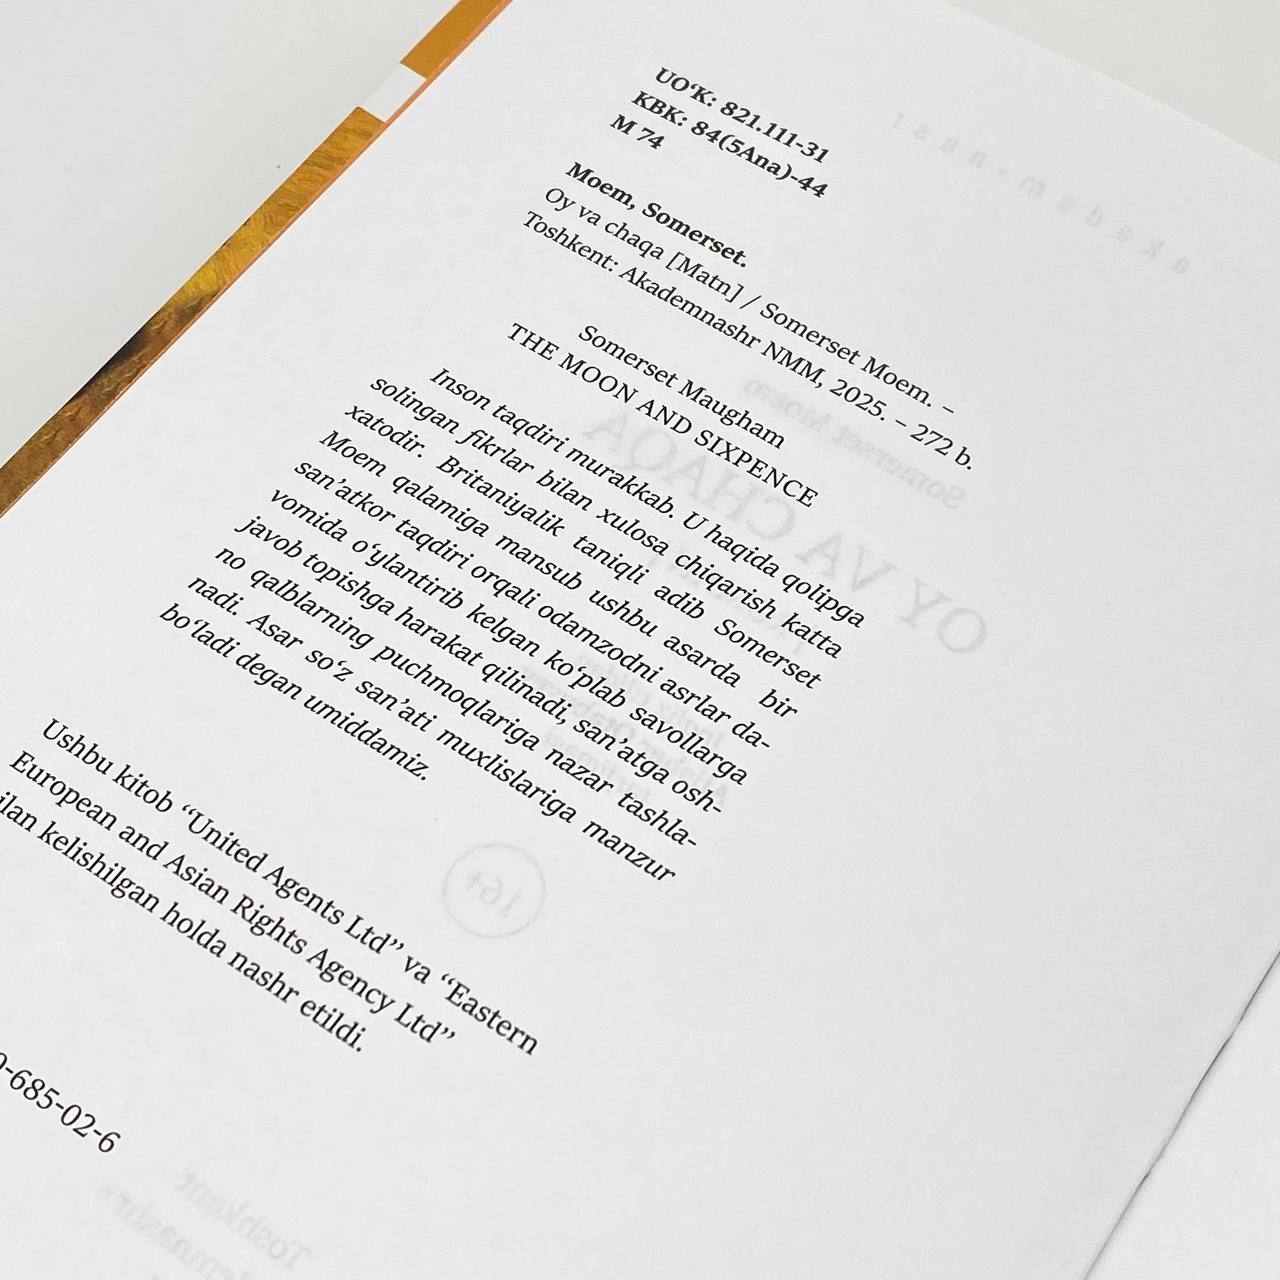 UO‘K: 821.111-31
KBK: 84(5Ana)-44
M 74
Moem, Somerset.
Oy va chaqa [Matn] / Somerset Moem. –
Toshkent: Akademnashr NMM, 2025. – 272 b.
Somerset Maugham
THE MOON AND SIXPENCE
Inson taqdiri murakkab. U haqida qolipga
solingan fikrlar bilan xulosa chiqarish katta
xatodir. Britaniyalik taniqli adib Somerset
Moem qalamiga mansub ushbu asarda bir
san’atkor taqdiri orqali odamzodni asrlar da-
vomida o‘ylantirib kelgan ko‘plab savollarga
javob topishga harakat qilinadi, san’atga osh-
no qalblarning puchmoqlariga nazar tashla-
nadi. Asar so‘z san’ati muxlislariga manzur
bo‘ladi degan umiddamiz.
Ushbu kitob “United Agents Ltd” va “Eastern
European and Asian Rights Agency Ltd”
kelishilgan holda nashr etildi.
-685-02-6
akadem-nashr
Somerset Moem
OY VA CHAQA
16+
Toshkent